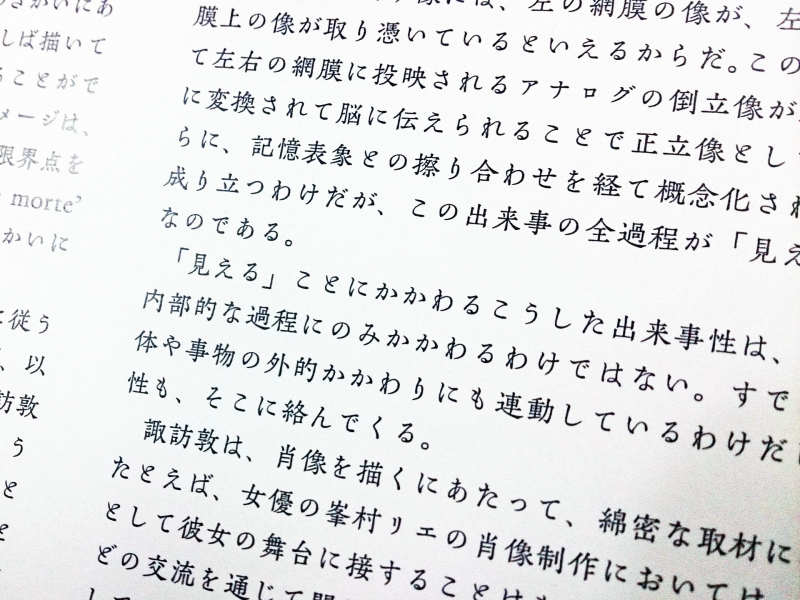 さかいにあ
しば描いて
ることがで
メージは、
限界点を
morte’
かいに
に従う
、以
訪敦
う
と
と
像には、左の網膜の像が、左
膜上の像が取り憑いているといえるからだ。この
て左右の網膜に投映されるアナログの倒立像が
に変換されて脳に伝えられることで正立像とし
らに、記憶表象との擦り合わせを経て概念化され
成り立つわけだが、この出来事の全過程が「見え
なのである。
「見える」ことにかかわるこうした出来事性は、
内部的な過程にのみかかわるわけではない。すで
体や事物の外的かかわりにも連動しているわけだ
性も、そこに絡んでくる。
諏訪敦は、肖像を描くにあたって、綿密な取材に
たとえば、女優の峯村リエの肖像制作においては
として彼女の舞台に接することは
どの交流を通じて
して